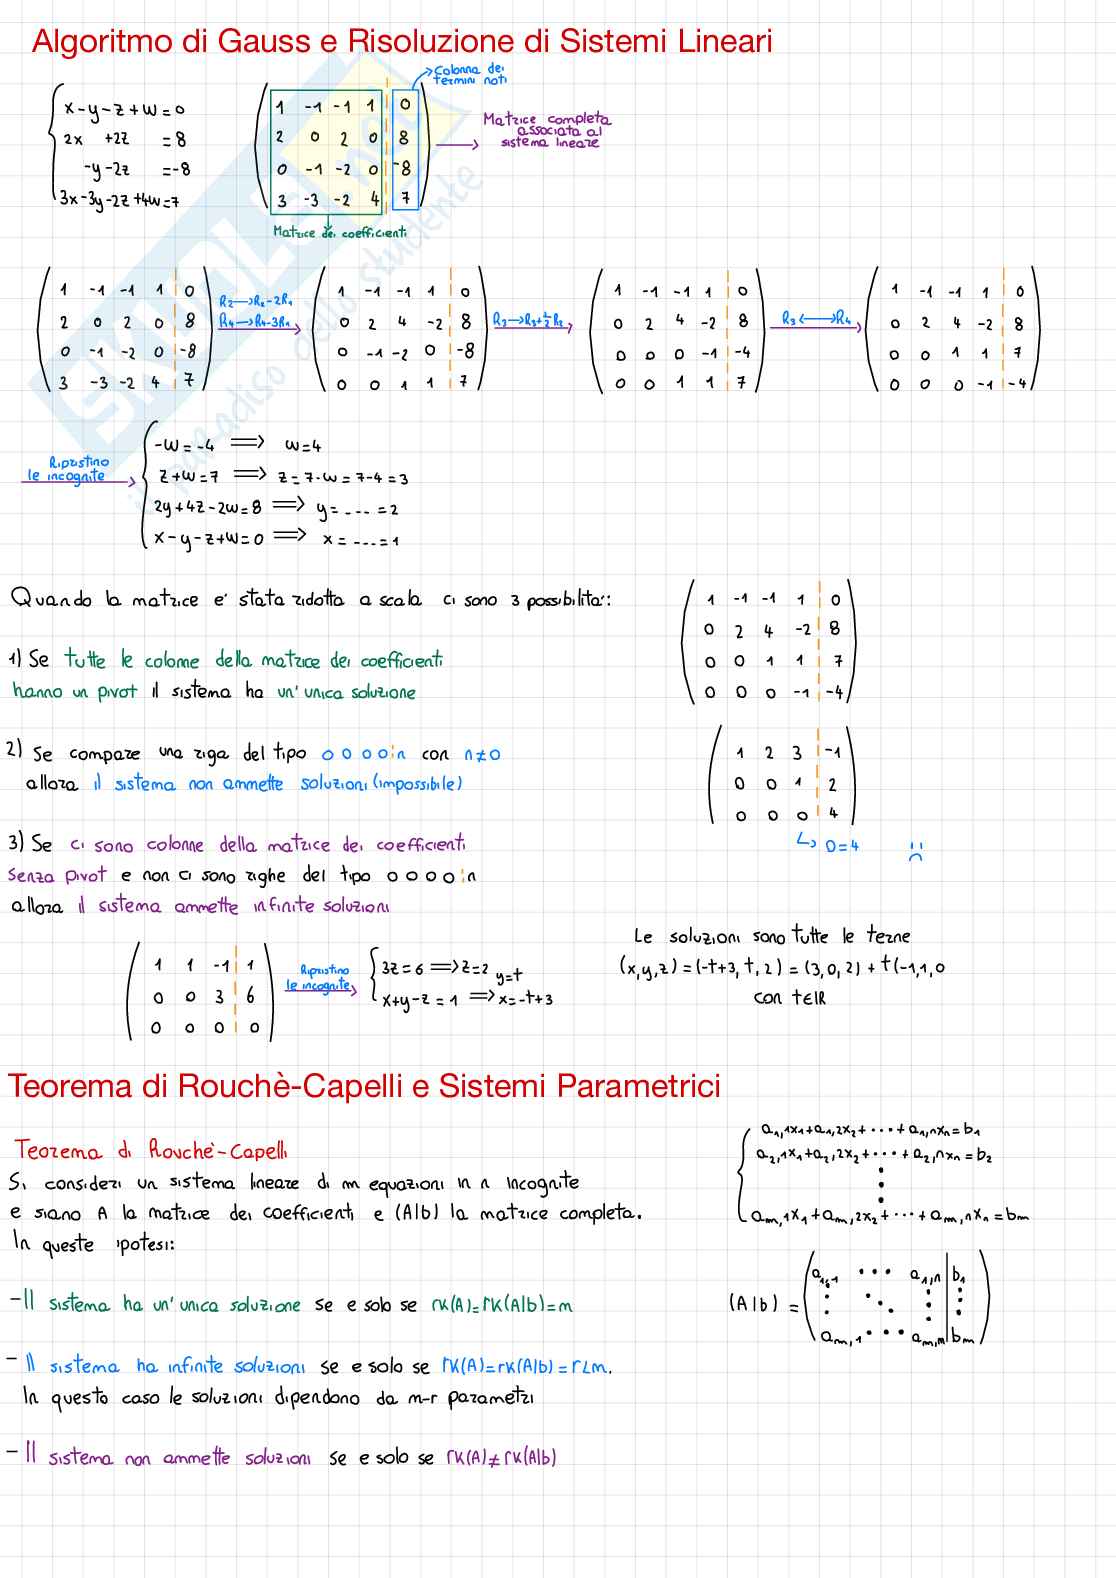 Algoritmo di Gauss e Risoluzione di Sistemi Lineari
Colonna dei
termini noti
x-y-z+w=0
2x +2z =8
-y-2z =-8
3x-3y-2z+4w=7
1 -1 -1 1 0
2 0 2 0 8
0 -1 -2 0 -8
3 -3 -2 4 7
Matrice completa
associata al
sistema lineare
Matrice dei coefficienti
1 -1 -1 1 0
2 0 2 0 8
0 -1 -2 0 -8
3 -3 -2 4 7
R2→R2-2R1
R4→R4-3R1
1 -1 -1 1 0
0 2 4 -2 8
0 -1 -2 0 -8
0 0 1 1 7
R3→R3+½R2
1 -1 -1 1 0
0 2 4 -2 8
0 0 0 -1 -4
0 0 1 1 7
R3←→R4
1 -1 -1 1 0
0 2 4 -2 8
0 0 1 1 7
0 0 0 -1 -4
Ripristino
le incognite
-w=-4 ⟹ w=4
z+w=7 ⟹ z=7-w=7-4=3
2y+4z-2w=8 ⟹ y=----=2
x-y-z+w=0 ⟹ x=----=1
Quando la matrice e' stata ridotta a scala ci sono 3 possibilita':
1 -1 -1 1 0
0 2 4 -2 8
0 0 1 1 7
0 0 0 -1 -4
1) Se tutte le colonne della matrice dei coefficienti
hanno un pivot il sistema ha un'unica soluzione
2) Se compare una riga del tipo 0 0 0 0 n con n≠0
allora il sistema non ammette soluzioni (impossibile)
1 2 3 -1
0 0 1 2
0 0 0 4
↳ 0=4
3) Se ci sono colonne della matrice dei coefficienti
senza pivot e non ci sono righe del tipo 0 0 0 0 n
allora il sistema ammette infinite soluzioni
1 1 -1 1
0 0 3 6
0 0 0 0
Ripristino
le incognite
3z=6 ⟹ z=2 y=t
x+y-z=1 ⟹ x=-t+3
Le soluzioni sono tutte le terne
(x,y,z)=(-t+3,t,2)=(3,0,2)+t(-1,1,0
con t∈ℝ
Teorema di Rouchè-Capelli e Sistemi Parametrici
Teorema di Rouchè-Capelli
Si consideri un sistema lineare di m equazioni in n incognite
e siano A la matrice dei coefficienti e (A|b) la matrice completa.
In queste ipotesi:
a1,1x1+a1,2x2+···+a1,nxn=b1
a2,1x1+a2,2x2+···+a2,nxn=b2
am,1x1+am,2x2+···+am,nxn=bm
- Il sistema ha un'unica soluzione se e solo se rk(A)=rk(A|b)=m
(A|b) =
a1,1 ··· a1,n b1
am,1 ··· am,n bm
- Il sistema ha infinite soluzioni se e solo se rk(A)=rk(A|b)=r<m.
In questo caso le soluzioni dipendono da m-r parametri
- Il sistema non ammette soluzioni se e solo se rk(A)≠rk(A|b)